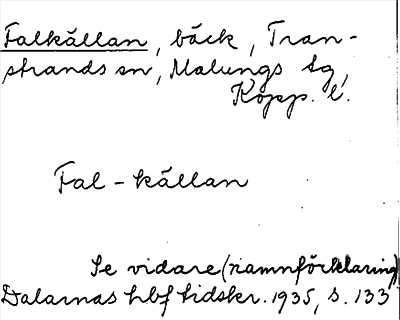 Falkällan, bäck, Tran-
strands sn, Malungs tg,
Kopp. l.
Fal-källan
Se vidare (namnförklaring)
Dalarnas hbf tidskr. 1935, s. 133